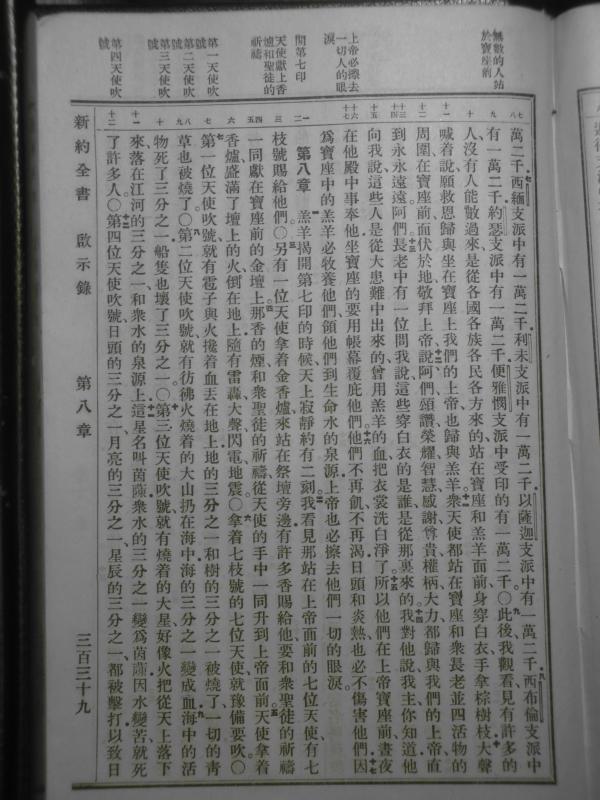 無數的人站
於寶座前
上帝必擦去
一切人的眼
淚
開第七印
天使獻上香
爐和聖徒的
祈禱
第一天使吹
號
第二天使吹
號
第三天使吹
號
第四天使吹
號
萬二千西緬支派中有一萬二千利未支派中有一萬二千以薩迦支派中有一萬二千西布倫支派中
有一萬二千約瑟支派中有一萬二千便雅憫支派中受印的有一萬二千〇此後我觀看見有許多的
人沒有人能數過來是從各國各族各民各方來的站在寶座和羔羊面前身穿白衣手拿棕樹枝大聲
喊着說願救恩歸與坐在寶座上我們的上帝也歸與羔羊衆天使都站在寶座和衆長老並四活物的
周圍在寶座前面伏於地敬拜上帝說阿們頌讚榮耀智慧感謝尊貴權柄大力都歸與我們的上帝直
到永永遠遠阿們長老中有一位問我說這些穿白衣的是誰是從那裏來的我對他說我主你知道他
向我說這些人是從大患難中出來的曾用羔羊的血把衣裳洗白淨了所以他們在上帝寶座前晝夜
在他殿中事奉他坐寶座的要用帳幕覆庇他們他們不再飢不再渴日頭和炎熱也必不傷害他們因
爲寶座中的羔羊必牧養他們領他們到生命水的泉源上帝也必擦去他們一切的眼淚
第八章 羔羊揭開第七印的時候天上寂靜約有二刻我看見那站在上帝面前的七位天使有七
枝號賜給他們〇另有一位天使拿着金香爐來站在祭壇旁邊有許多香賜給他要和衆聖徒的祈禱
一同獻在寶座前的金壇上那香的煙和衆聖徒的祈禱從天使的手中一同升到上帝面前天使拿着
香爐盛滿了壇上的火倒在地上隨有雷轟大聲閃電地震〇拿着七枝號的七位天使就豫備要吹〇
第一位天使吹號就有雹子與火攙着血丟在地上地的三分之一和樹的三分之一被燒了一切的靑
草也被燒了〇第二位天使吹號就有彷彿火燒着的大山扔在海中海的三分之一變成血海中的活
物死了三分之一船隻也壞了三分之一〇第三位天使吹號就有燒着的大星好像火把從天上落下
來落在江河的三分之一和衆水的泉源上這星名叫茵蔯衆水的三分之一變爲茵蔯因水變苦就死
了許多人〇第四位天使吹號日頭的三分之一月亮的三分之一星辰的三分之一都被擊打以致日
新約全書 啟示錄 第八章 三百三十九